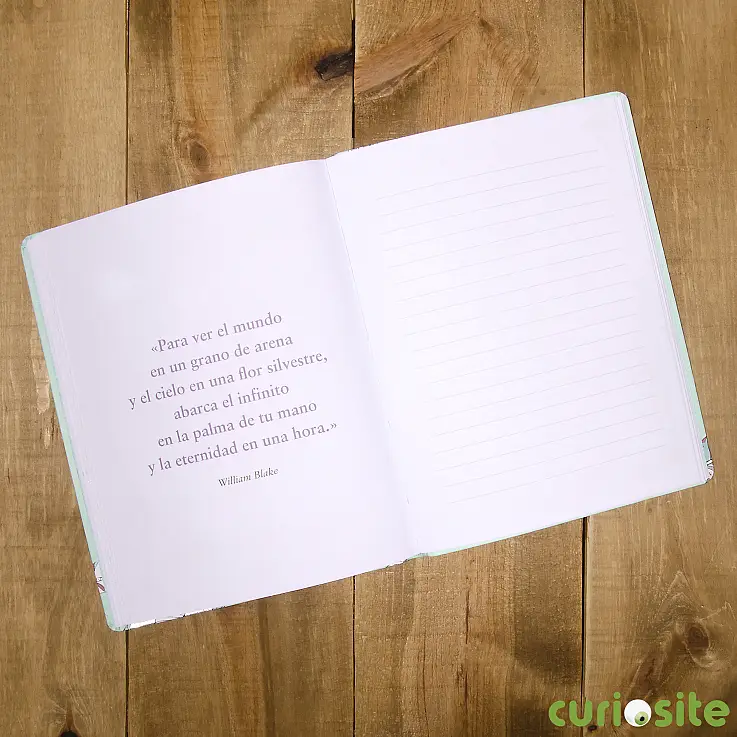 «Para ver el mundo
en un grano de arena
y el cielo en una flor silvestre,
abarca el infinito
en la palma de tu mano
y la eternidad en una hora.»
William Blake
curiosite